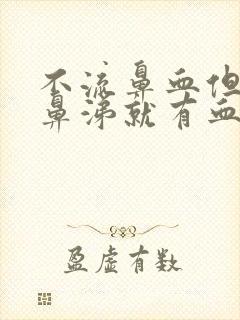 不流鼻血但
鼻涕就有血
盈虚有数